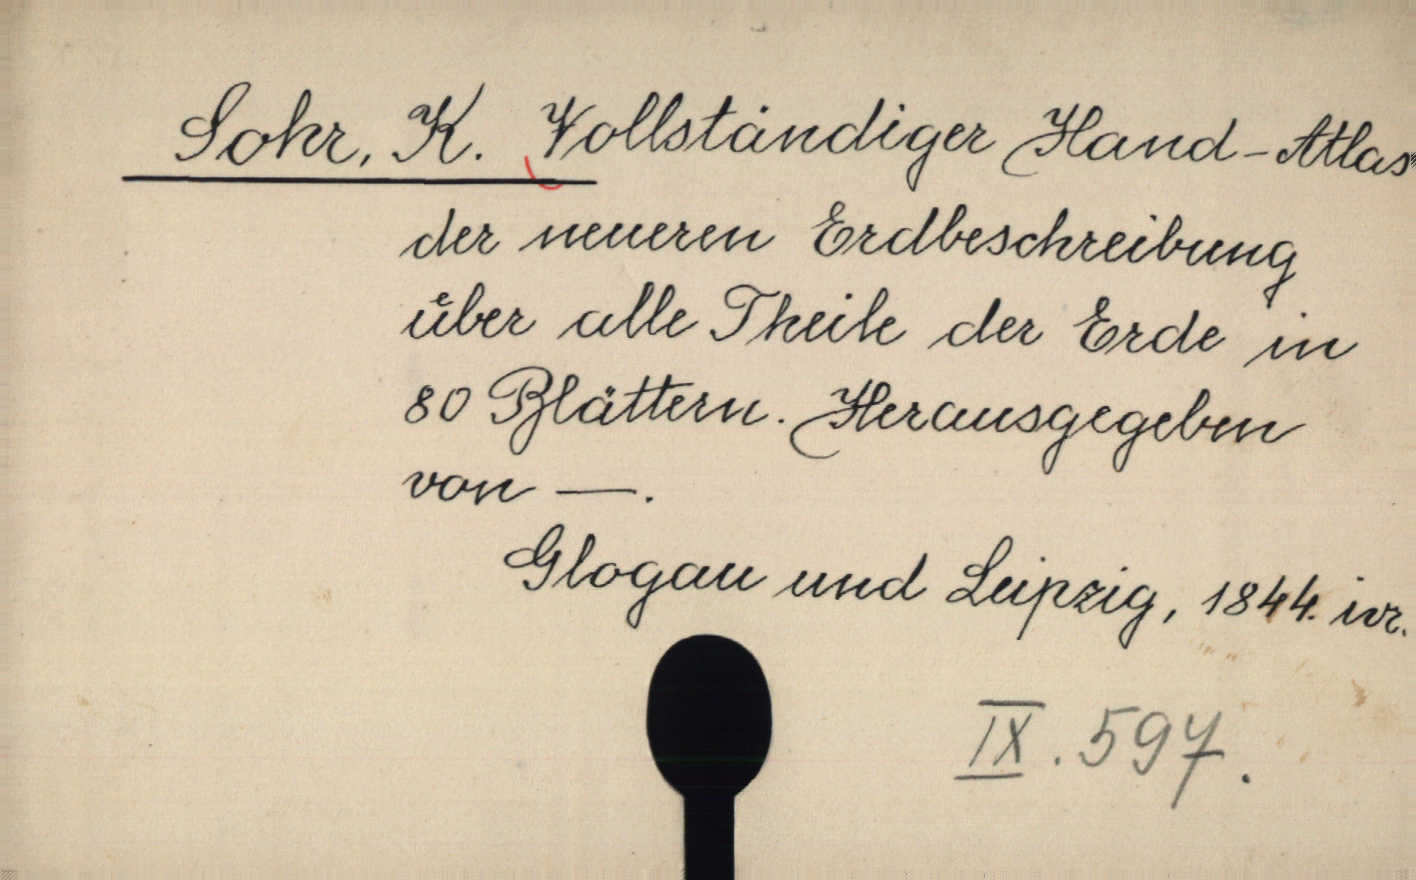 Sohr, K. Vollständiger Hand-Atlas
der neueren Erdbeschreibung
über alle Theile der Erde in
80 Blättern. Herausgegeben
von —.
Glogau und Leipzig, 1844. ivr.
IX. 597.